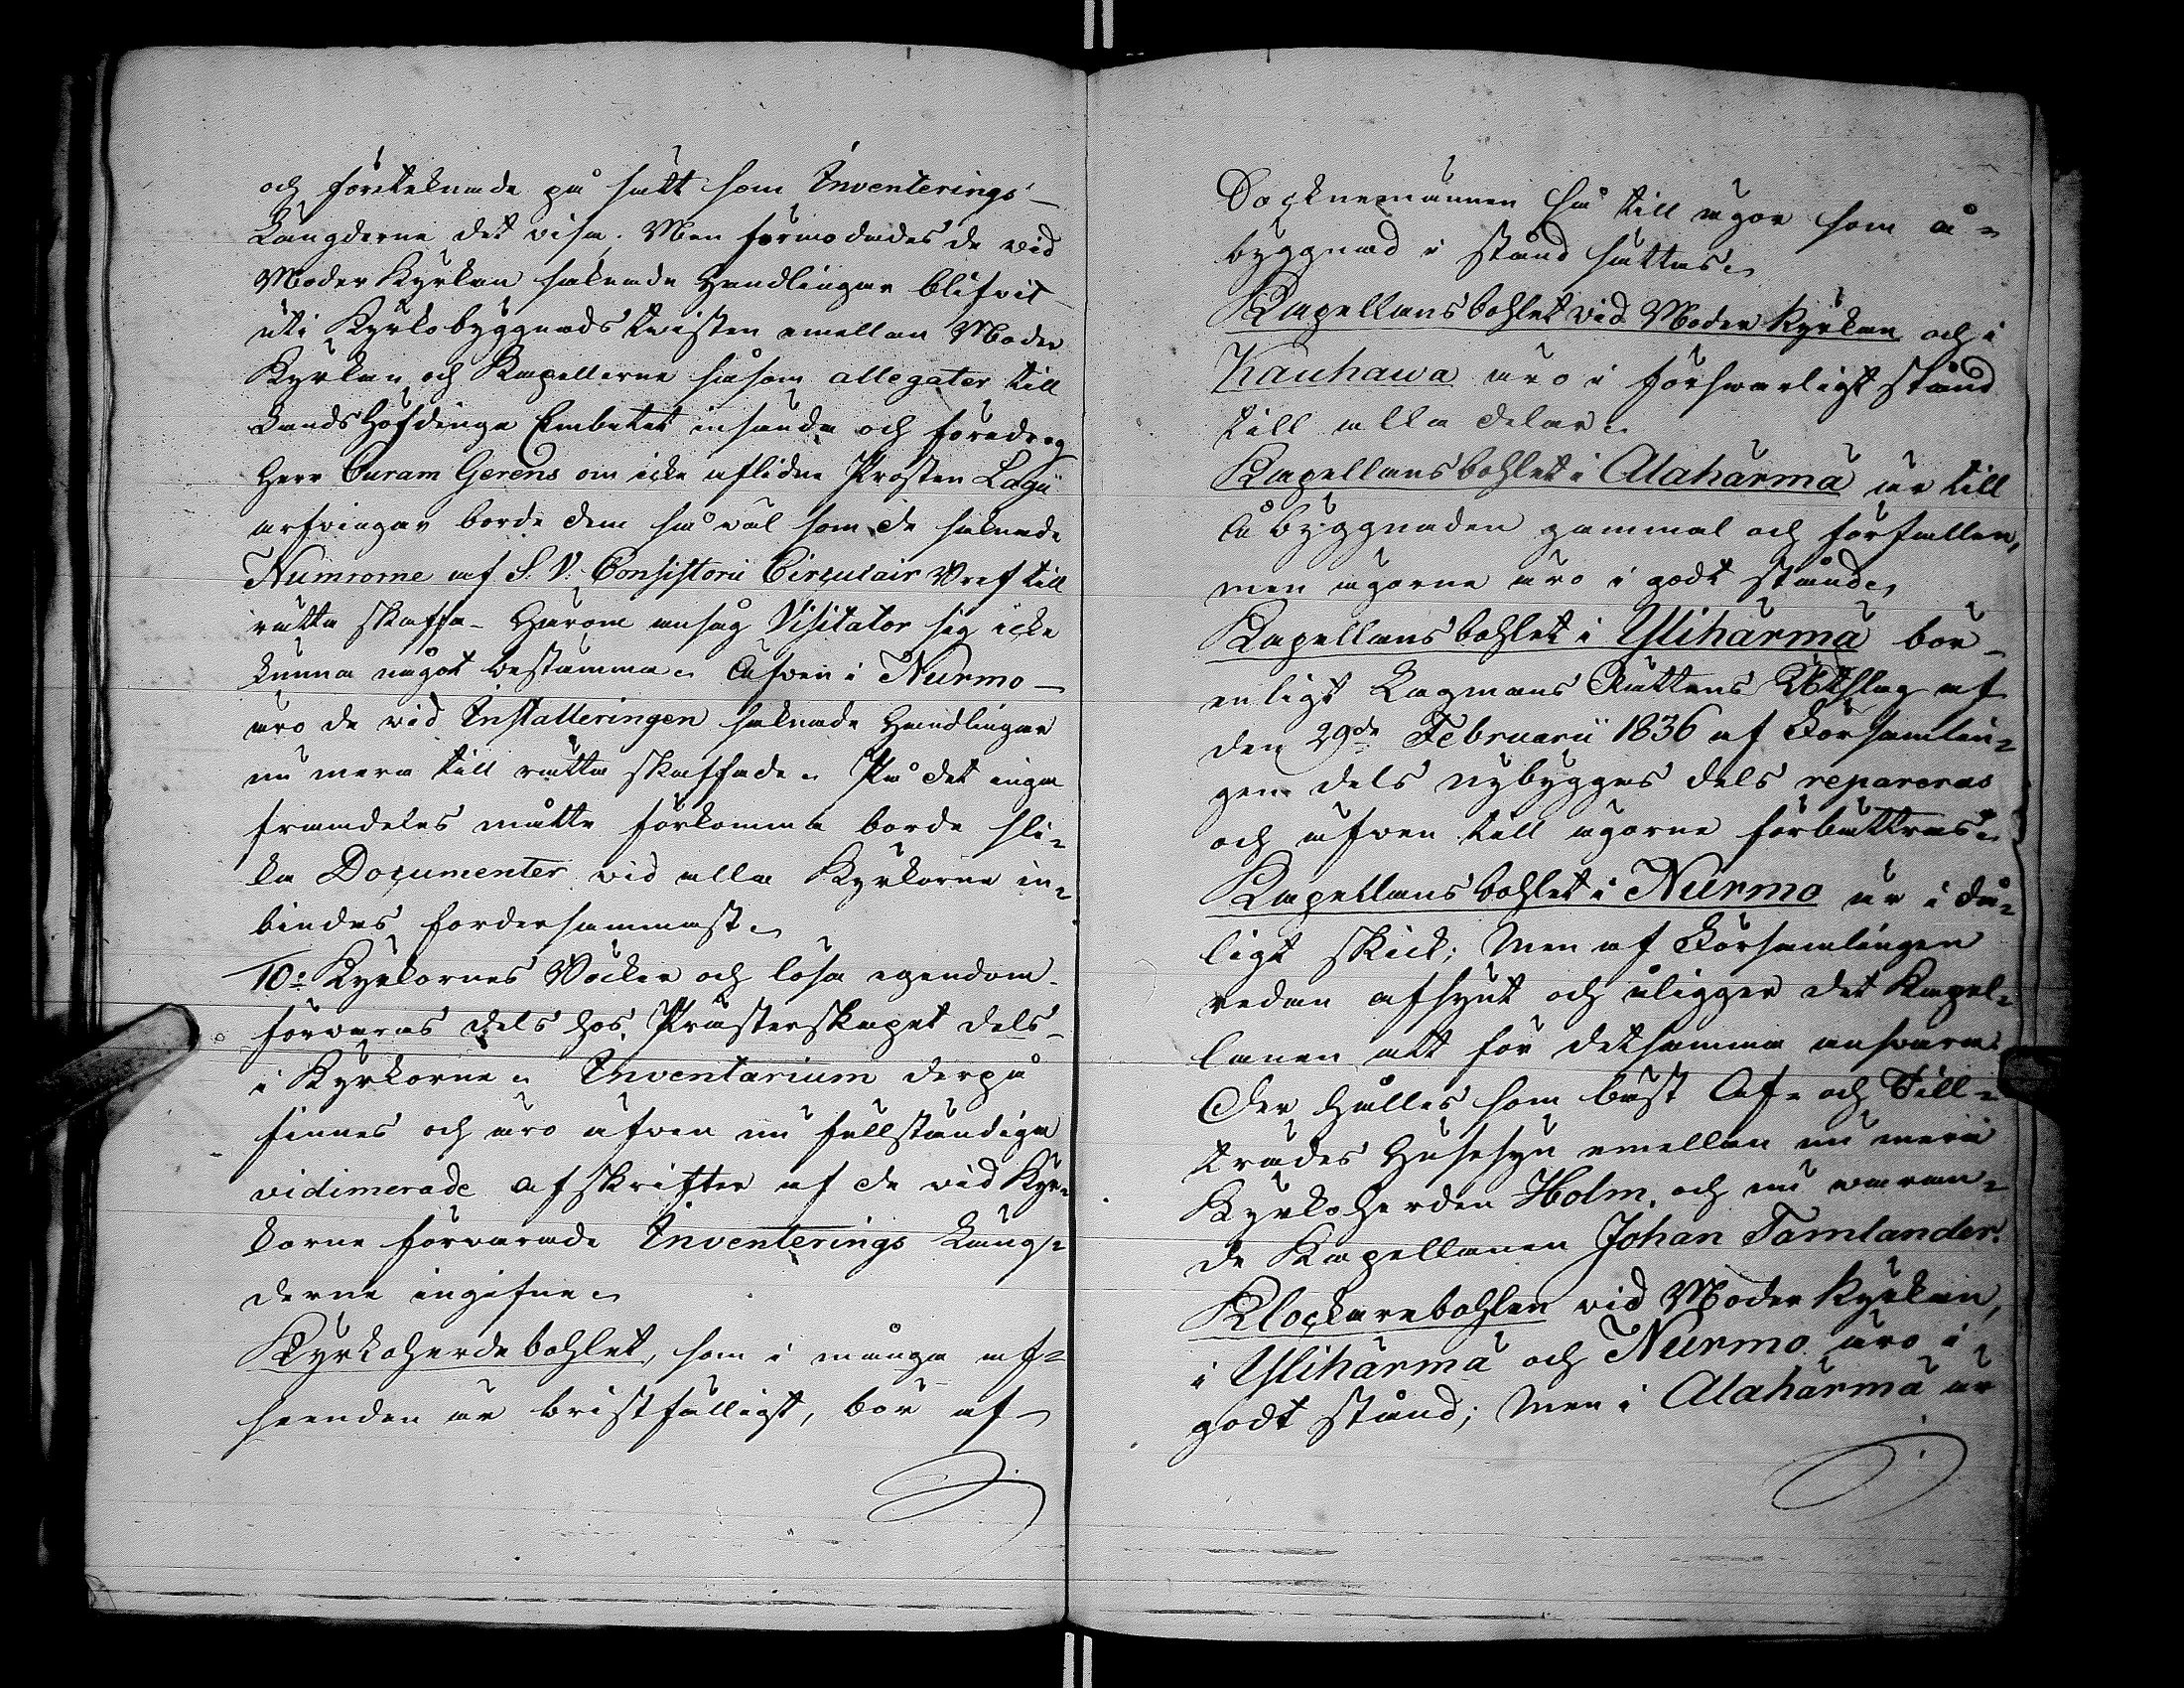 och förtecknade på sätt som Inventerings-
Längderne det visa. Men förmodades de vid
Moder Kyrkan saknade Handlingar blifvit
uti Kyrkobyggnads twisten emellan Moder
Kyrkan och Kapellerne såsom allegater till
Lands Höfdinge Embetet insända och föredrog
Herr Curam Gerens om icke aflidne Prosten Lagi
arfvingar borde dem så väl som de saknade
Numrorne af S. V. Consistorii Circulair Bref till
rätta skaffa - Härom ansåg Visitator sig icke
kunna något bestämma. Äfven i Nurmo -
äro de vid Installeringen saknade Handlingar
nu mera till rätta skaffade. På det inga
framdeles måtte förkomma borde sli=
ka Documenter vid alla Kyrkorne in=
bindas fordersammast.
10:o Kyrkornes Böcker och lösa egendom
förvaras dels hos Prästerskapet dels -
i Kyrkorne. Inventarium derpå
finnes och äro äfven nu fullständiga
vidimerade afskrifter af de vid Kyr=
korne förvarade Inventerings Läng=
derne ingifne.
Kyrkoherdebohlet, som i många af=
seenden är bristfälligt, bör af
Socknemännen så till ägor som å=
byggnad i stånd sättas.
Kapellansbohlet vid Moder Kyrkan och i
Kauhawa äro i försvarligt stånd
till alla delar.
Kapellansbohlet i Alahärmä är till
Åbyggnaden gammal och förfallen,
men ägorne äro i godt stånd.
Kapellansbohlet i Ylihärmä bör -
enligt Lagmans Rättens Utslag af
den 29de Februarii 1836 af Församlin=
gen dels nybyggas dels repareras
och äfven till ägorne förbättras.
Kapellans bohlet i Nurmo är i då=
ligt skick; Men af Församlingen
redan afsynt och åligger det Kapel=
lanen att för detsamma ansvara.
Der hålles som bäst Af- och Till=
trädes Husesyn emellan nu mera
Kyrkoherden Holm, och nu varan=
de Kapellanen Johan Tamlander.
Klockarebohlen vid Moder Kyrkan,
i Ylihärmä och Nurmo äro i
godt stånd; Men i Alahärmä är